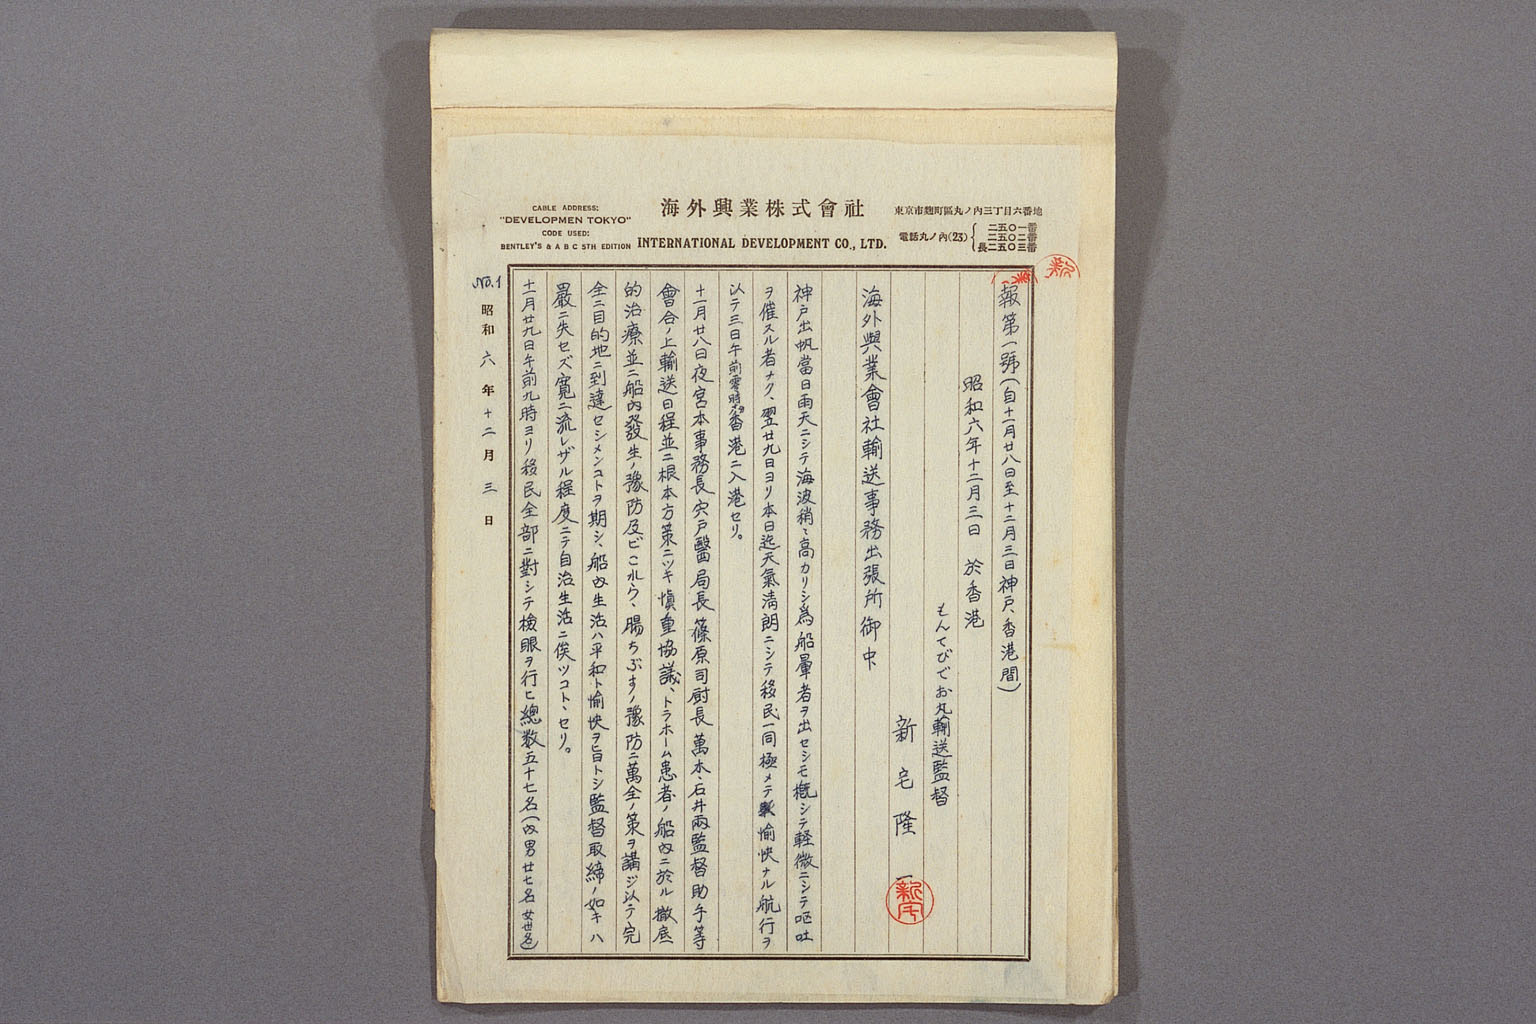 CABLE ADDRESS:
"DEVELOPMEN TOKYO"
CODE USED:
BENTLEY'S & A B C 5TH EDITION
海外興業株式會社
INTERNATIONAL DEVELOPMENT CO., LTD.
東京市麴町區丸ノ內三丁目六番地
電話丸ノ內(23)
二五〇一番
二五〇二番
長二五〇三番
報第一號(自十一月廿八日至十二月三日神戸、香港間)
昭和六年十二月三日 於香港
もんてびでお丸輸送監督
新宅隆一
海外興業會社輸送事務出張所御中
神戸出帆當日雨天ニシテ海波稍〻高カリシ爲船暈者ヲ出セシモ概シテ軽微ニシテ嘔吐
ヲ催スル者ナク、翌廿九日ヨリ本日迄天氣淸朗ニシテ移民一同極メテ愉快ナル航行ヲ
以テ三日午前零時香港ニ入港セリ。
十一月廿八日夜宮本事務長宍戸醫局長篠原司厨長萬木、石井兩監督助手等
會合ノ上輸送日程並ニ根本方策ニツキ愼重協議、トラホーム患者ノ船內ニ於ル徹底
的治療並ニ船內發生ノ豫防及ビこれら、腸ちぶすノ豫防ニ萬全ノ策ヲ講ジ以テ完
全ニ目的地ニ到達セシメンコトヲ期シ、船內生活ハ平和ト愉快ヲ旨トシ監督取締ノ如キハ
嚴ニ失セズ寬ニ流レザル程度ニテ自治生活ニ俟ツコトヽセリ。
十一月廿九日午前九時ヨリ移民全部ニ對シテ檢眼ヲ行ヒ總数五十七名(內男廿七名 女卅名)
No.1
昭和六年十二月三日